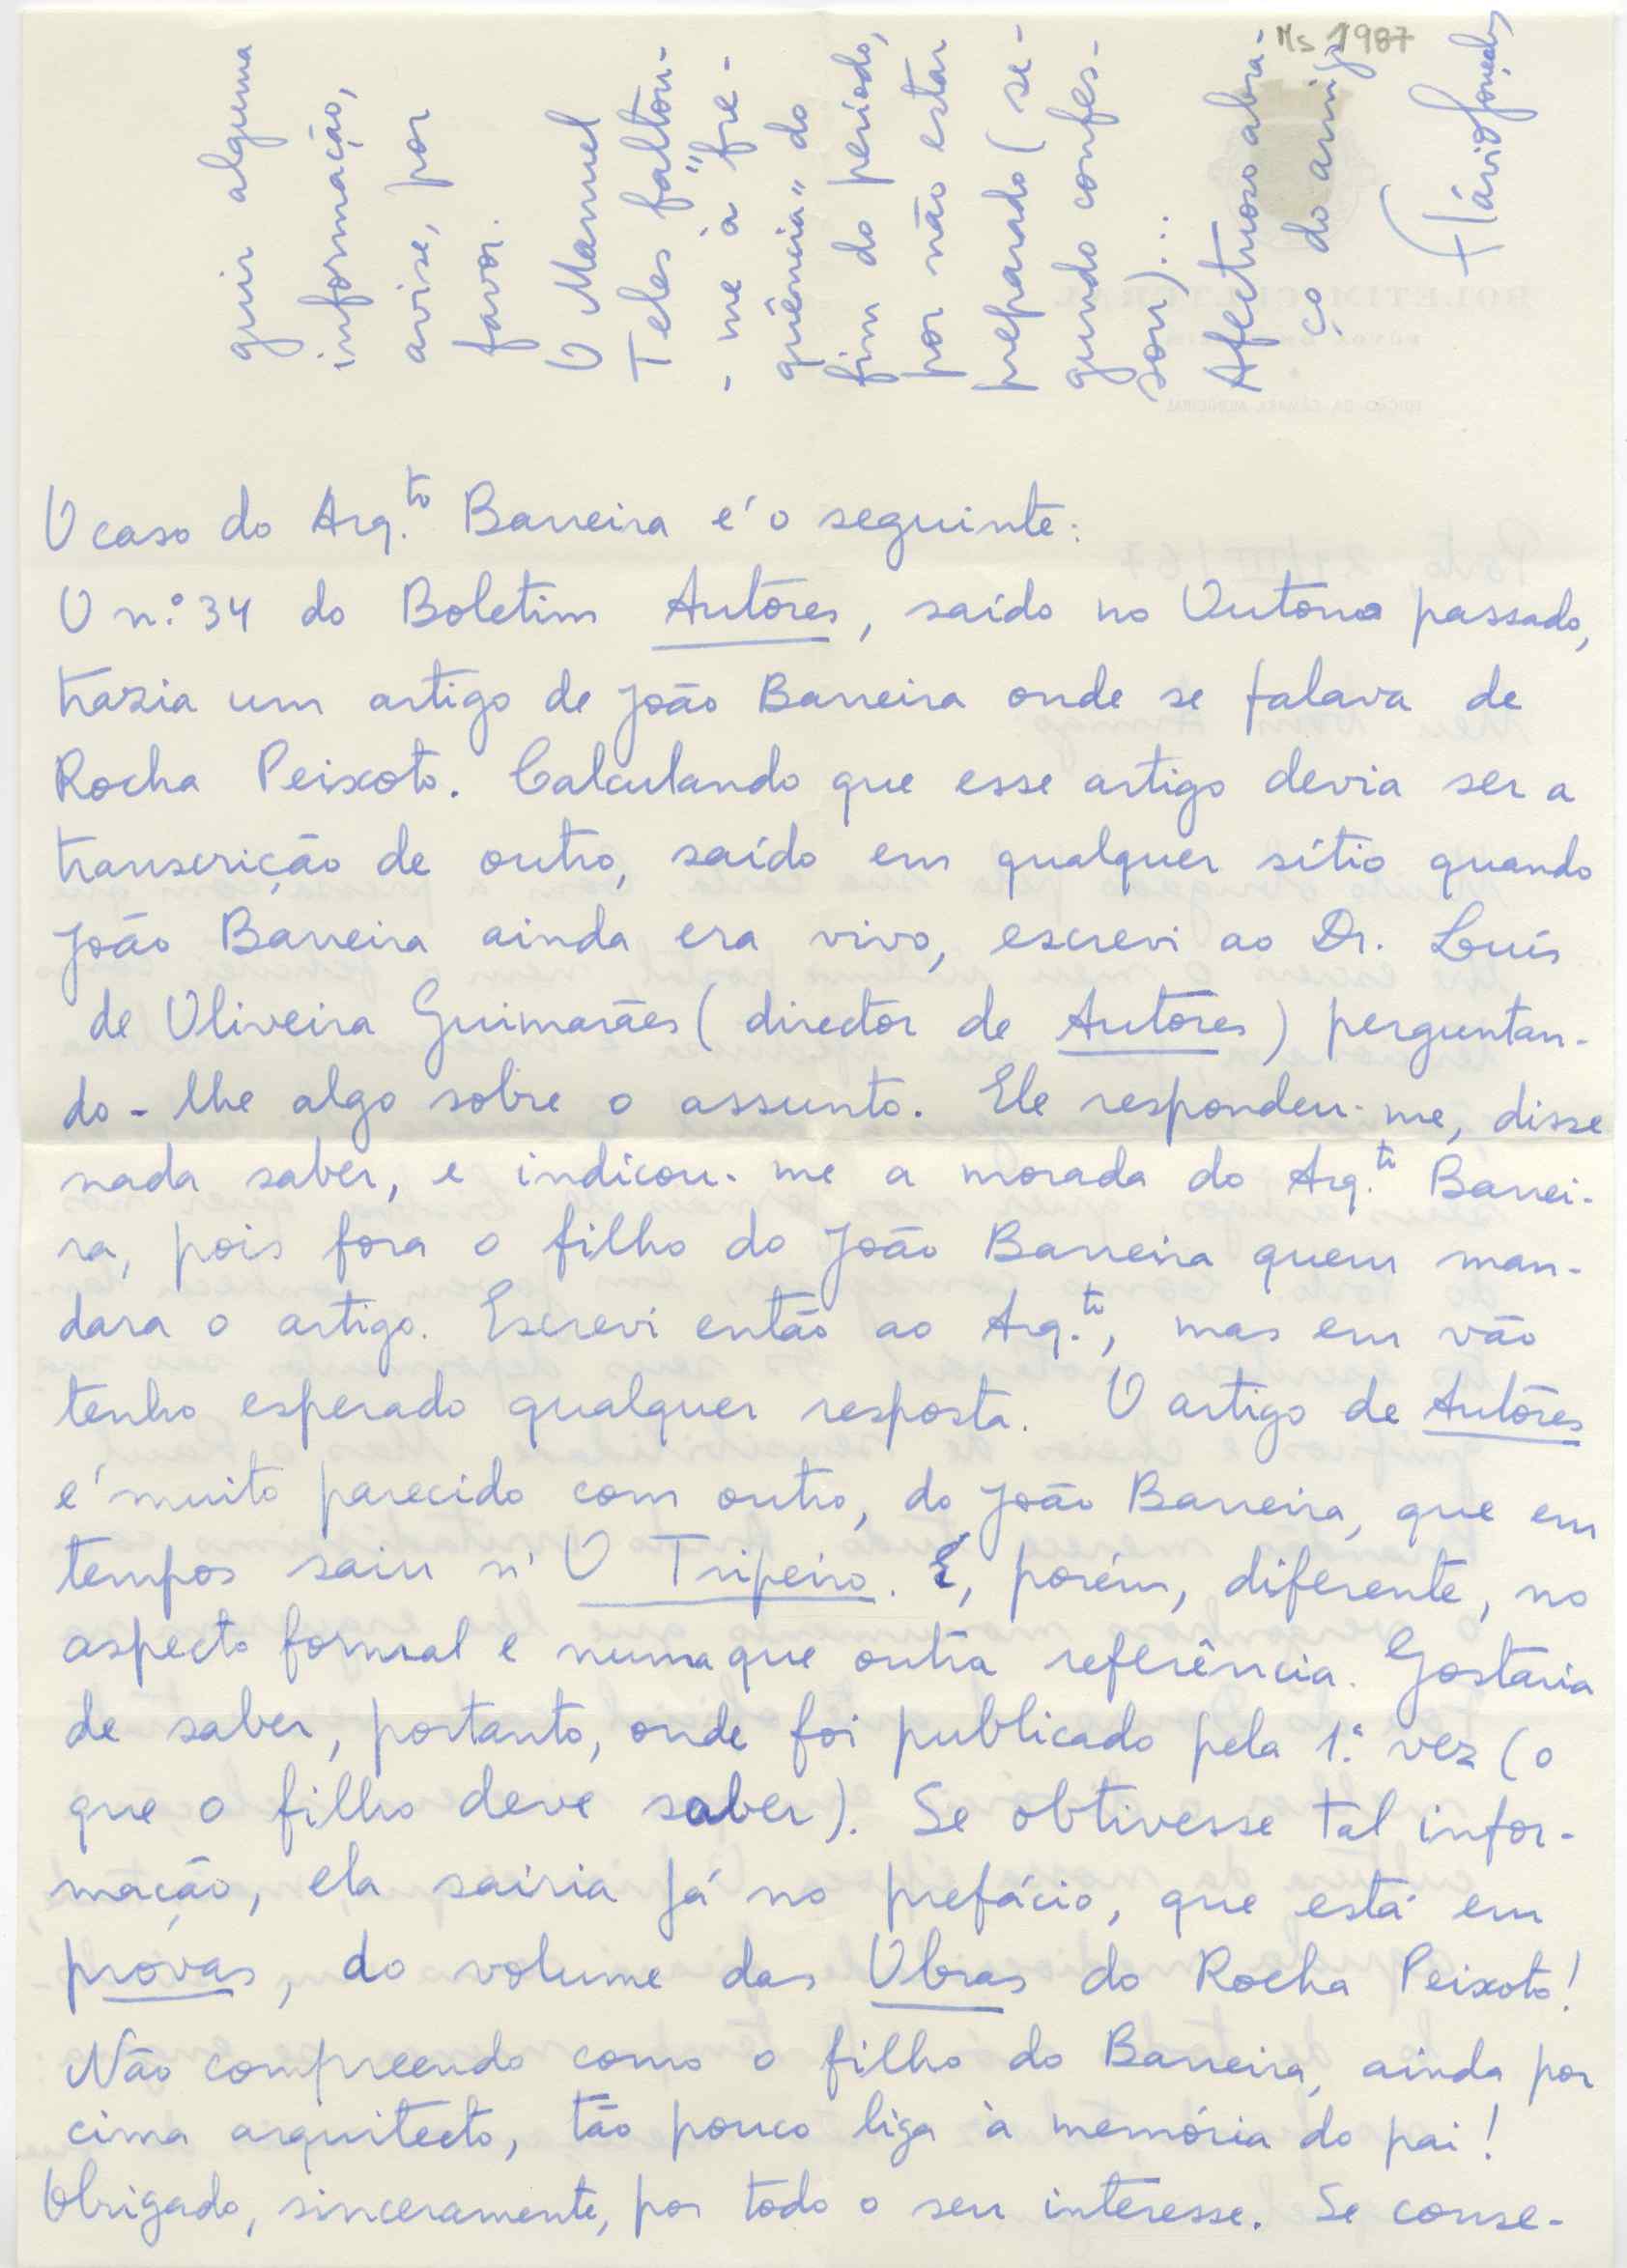 Ms 1987
O caso do Arq.to Barreira é o seguinte:
O n.º 34 do Boletim Autores, saído no Outono passado,
trazia um artigo de João Barreira onde se falava de
Rocha Peixoto. Calculando que esse artigo devia ser a
transcrição de outro, saído em qualquer sítio quando
João Barreira ainda era vivo, escrevi ao Dr. Luís
de Oliveira Guimarães (director de Autores) perguntan-
do-lhe algo sobre o assunto. Ele respondeu-me, disse
nada saber, e indicou-me a morada do Arq.to Barrei-
ra, pois fora o filho do João Barreira quem man-
dara o artigo. Escrevi então ao Arq.to, mas em vão
tenho esperado qualquer resposta. O artigo de Autores
é muito parecido com outro, do João Barreira, que em
tempos saiu n'O Tripeiro. É, porém, diferente, no
aspecto formal e numa que outra referência. Gostaria
de saber, portanto, onde foi publicado pela 1.ª vez (o
que o filho deve saber). Se obtivesse tal infor-
mação, ela sairia já no prefácio, que está em
provas, do volume das Obras do Rocha Peixoto!
Não compreendo como o filho do Barreira, ainda por
cima arquitecto, tão pouco liga à memória do pai!
Obrigado, sinceramente, por todo o seu interesse. Se conse-
guir alguma
informação,
avise, por
favor.
O Manuel
Teles faltou-
-me à "fre-
quência" do
fim do período,
por não estar
preparado (se-
gundo confes-
sou)...
Afectuoso abra-
ço do amigo
Flávio Gonçalves